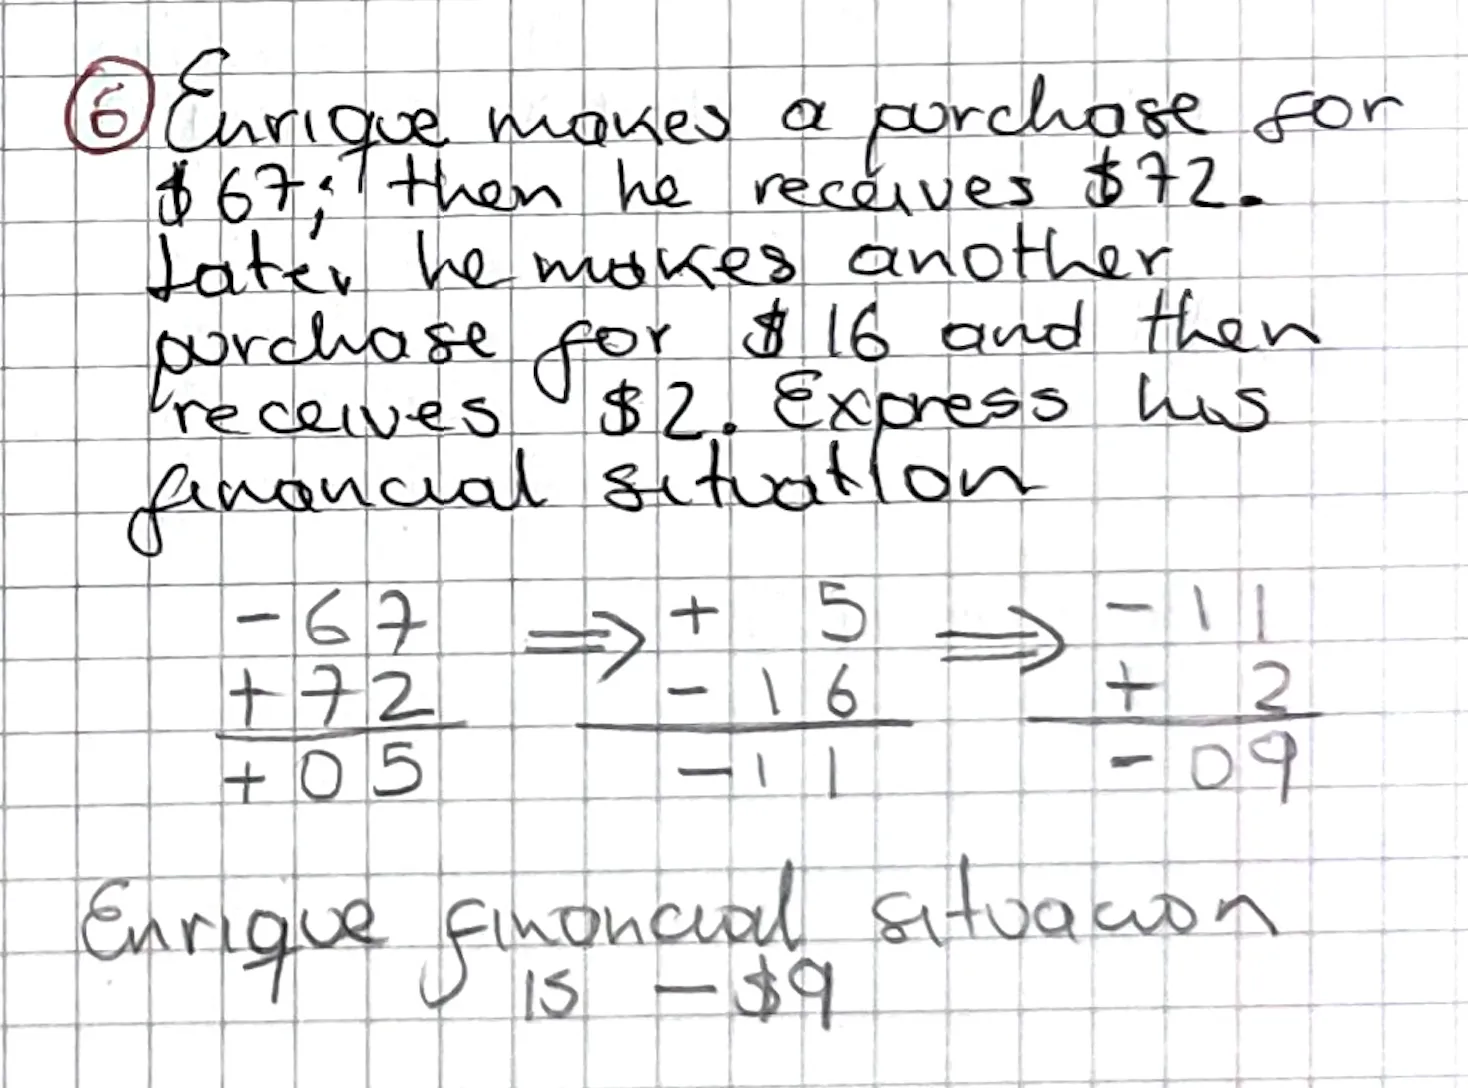 6 Enrique makes a purchase for
$67; then he receives $72.
Later he makes another
purchase for $16 and then
receives $2. Express his
financial situation
-67 ⇒ + 5 ⇒ -11
+72 -16 + 2
+05 -11 -09
Enrique financial situacion
is -$9